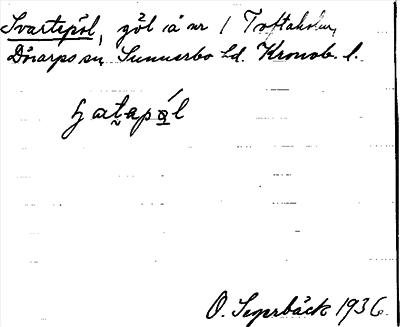 Svartepöl, göl å nr 1 Toftaholm,
Dörarps sn Sunnerbo hd. Kronob. l.
O. Seyrbäck 1936.